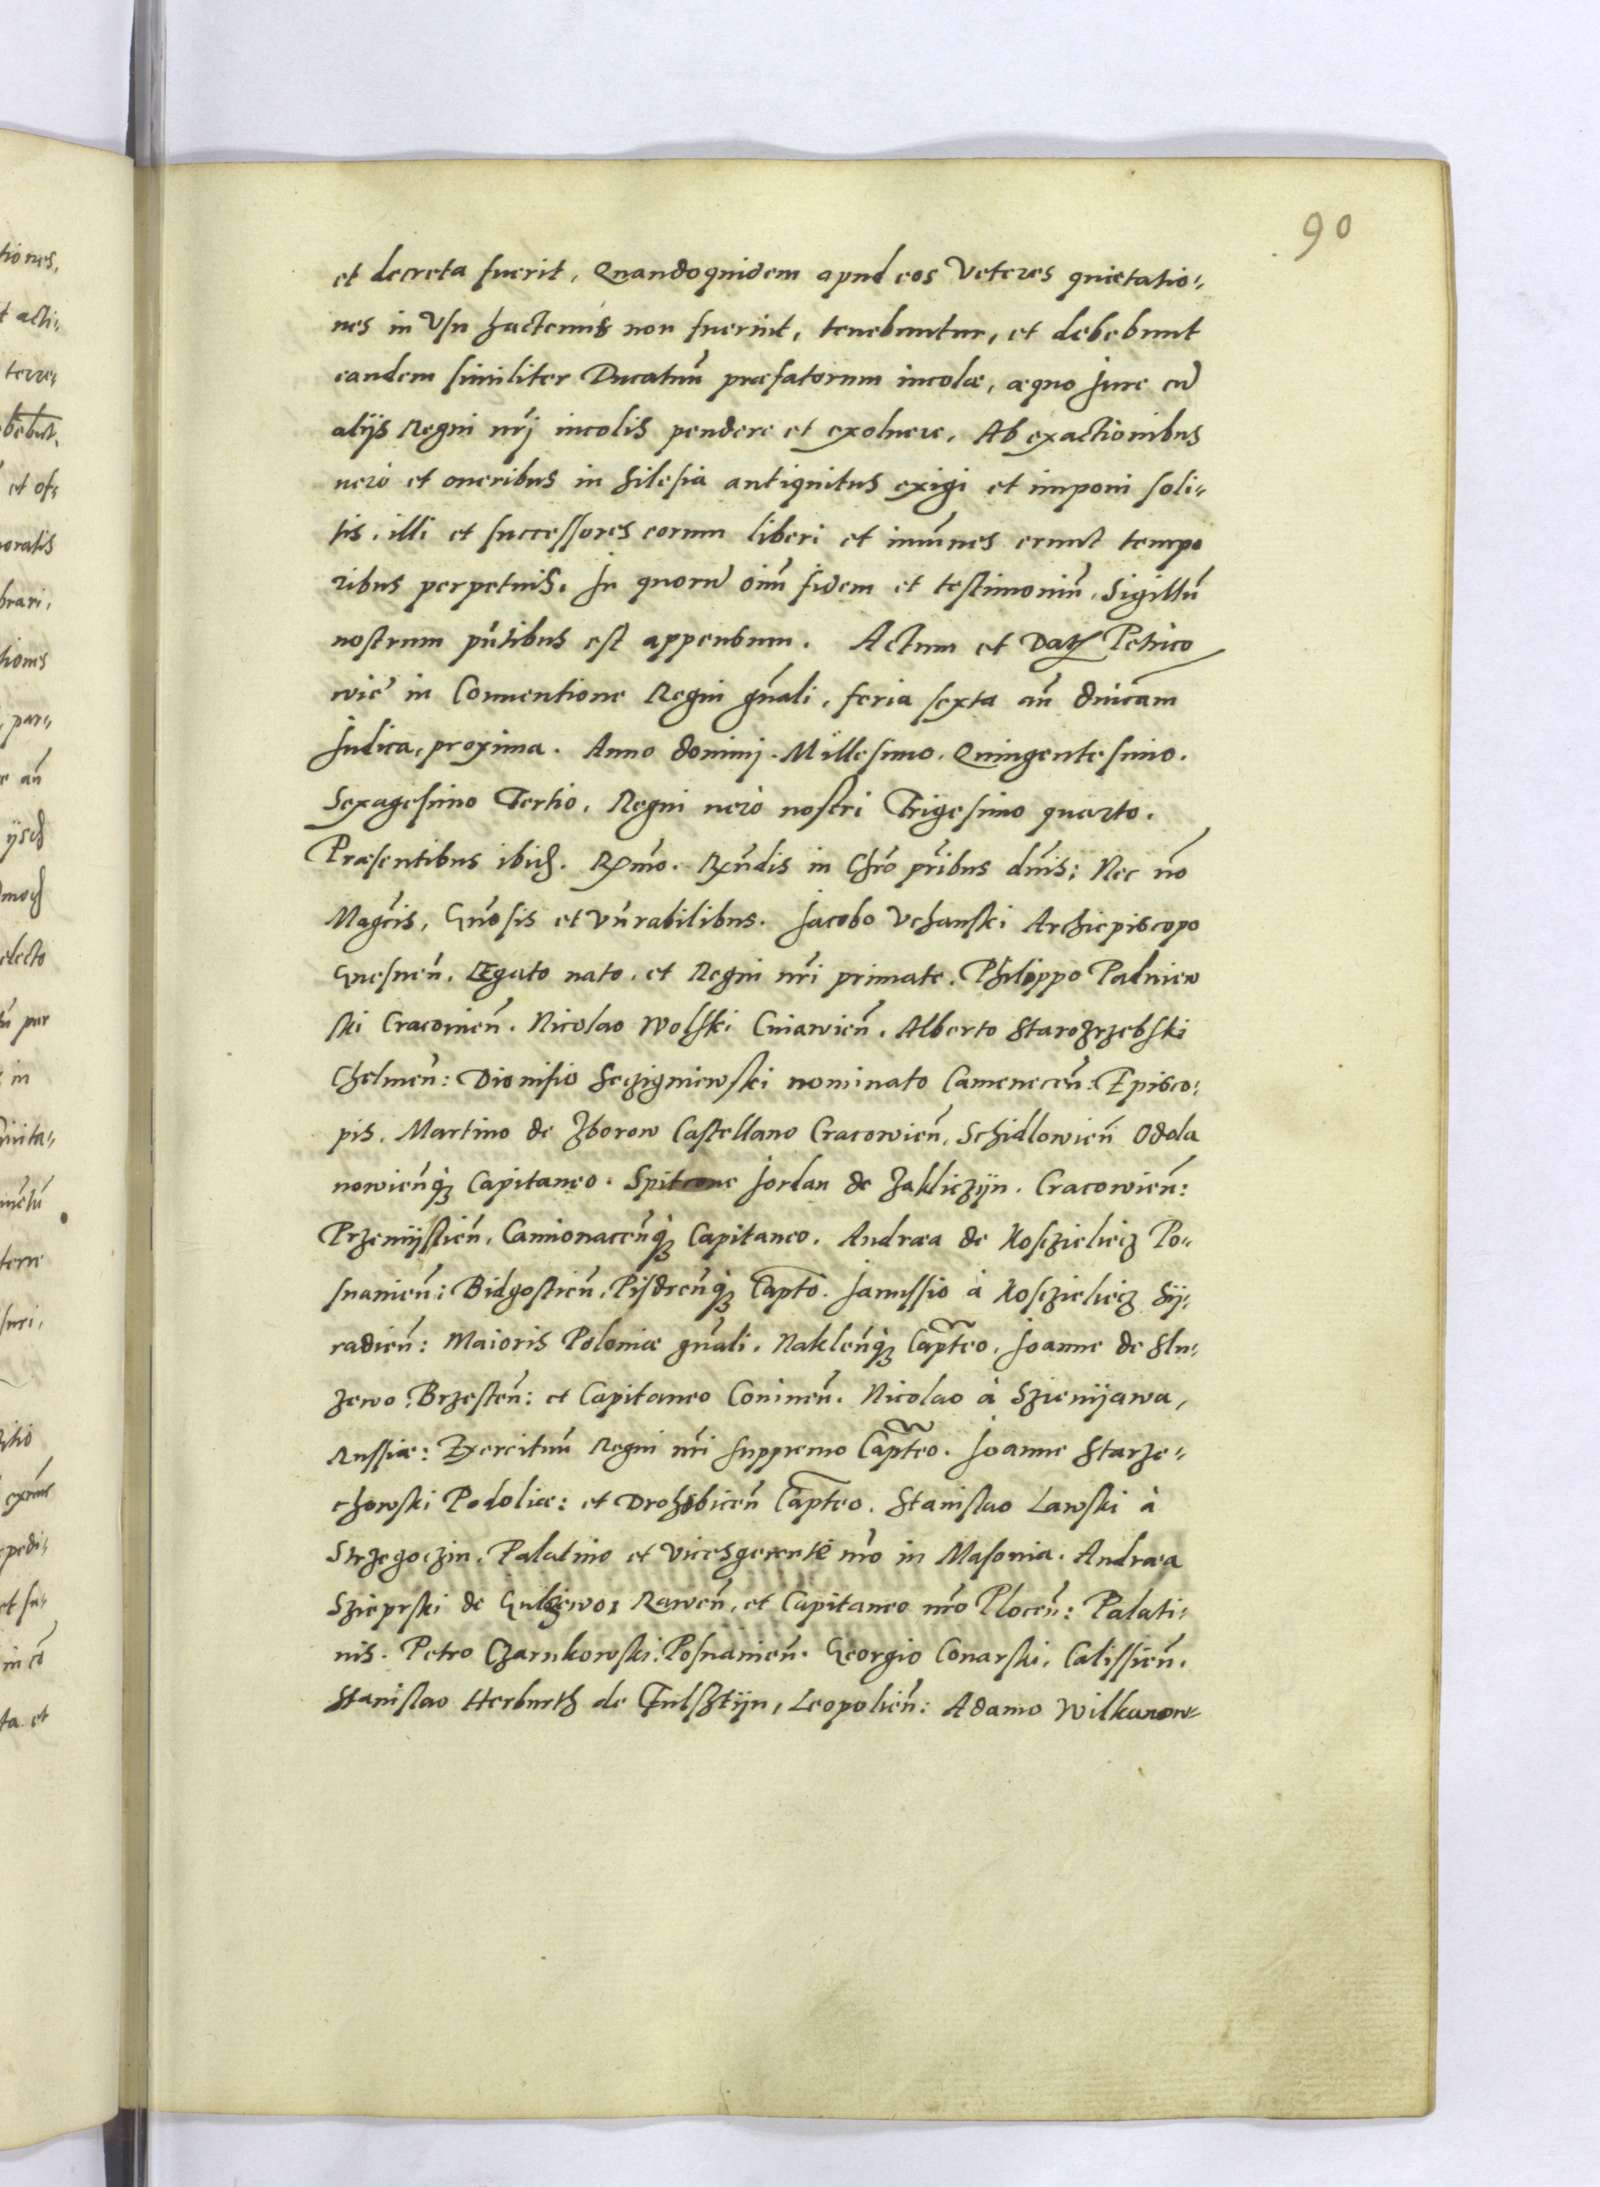 90
et decreta fuerit, Quandoquidem apud eos Veteres quietatio,,
nes in Vsu hactenus non fuerint, tenebuntur, et debebunt
eandem similiter Ducatuũ præfatorum incolæ, æquo Jure cũ
alijs Regni nr̃j incolis pendere et exoluere. Ab exactionibus
uero et oneribus in Silesia antiquitus exigi et imponi soli,,
tis, illi et successores eorum liberi et imũnes erunt tempo
ribus perpetuis. In quorũ oĩm fidem et testimoniũ, Sigillũ
nostrum pñtibus est appensum. Actum et Datȝ Petrico
wiẽ in Conuentione Regni gñali, feria sexta añ dñicam
Judica, proxima. Anno dominj. Millesimo. Quingentesimo.
Sexagesimo Tertio, Regni uero nostri Trigesimo quarto.
Præsentibus ibidȝ. Rx̃mo. Rx̃ndis in Chr̃o pr̃ibus dñis: Nec nõ
Magc̃is, Gñosis et Vñrabilibus. Jacobo Vchanski Archiepiscopo
Gnesneñ. Legato nato, et Regni nr̃i primate. Philippo Padniew
ski Cracouieñ. Nicolao Wolski Cuiawieñ. Alberto Starozrzebski
Chelmeñ: Dionisio Seczigniewski nominato Cameneceñ: Episco,
pis. Martino de Zborow Castellano Cracowieñ, Schidlowieñ Odola
nowieñq̃ȝ Capitaneo. Spitcone Jordan de Zakliczijn. Cracowieñ:
Przemijslieñ, Camionaceñq̃ȝ Capitaneo. Andræa de Kosczieliecz Po,,
snanieñ: Bidgostieñ, Pisdreñq̃ȝ Capto. Janussio à Kosczieliecz Sij,,
radieñ: Maioris Poloniæ gñali. Nakleñq̃ȝ Cap̃teo. Joanne de Slu,,
zewo: Brzesteñ: et Capitaneo Conineñ. Nicolao à Szienijawa,
Russiæ: Exercituũ Regni nr̃i Suppremo Cap̃teo. Joanne Starze,,
chowski Podoliæ: et Drohobiceñ Cap̃teo. Stanislao Lawski à
Strzegoczin, Palatino et Vicesgerente nr̃o in Masouia. Andræa
Szieprski de Gulczewo: Raweñ, et Capitaneo nr̃o Ploceñ: Palati,
nis. Petro Czarnkowski: Posnanieñ. Georgio Conarski, Calissieñ.
Stanislao Herburth de Fulsztijn, Leopolieñ: Adamo Wilkanow,,